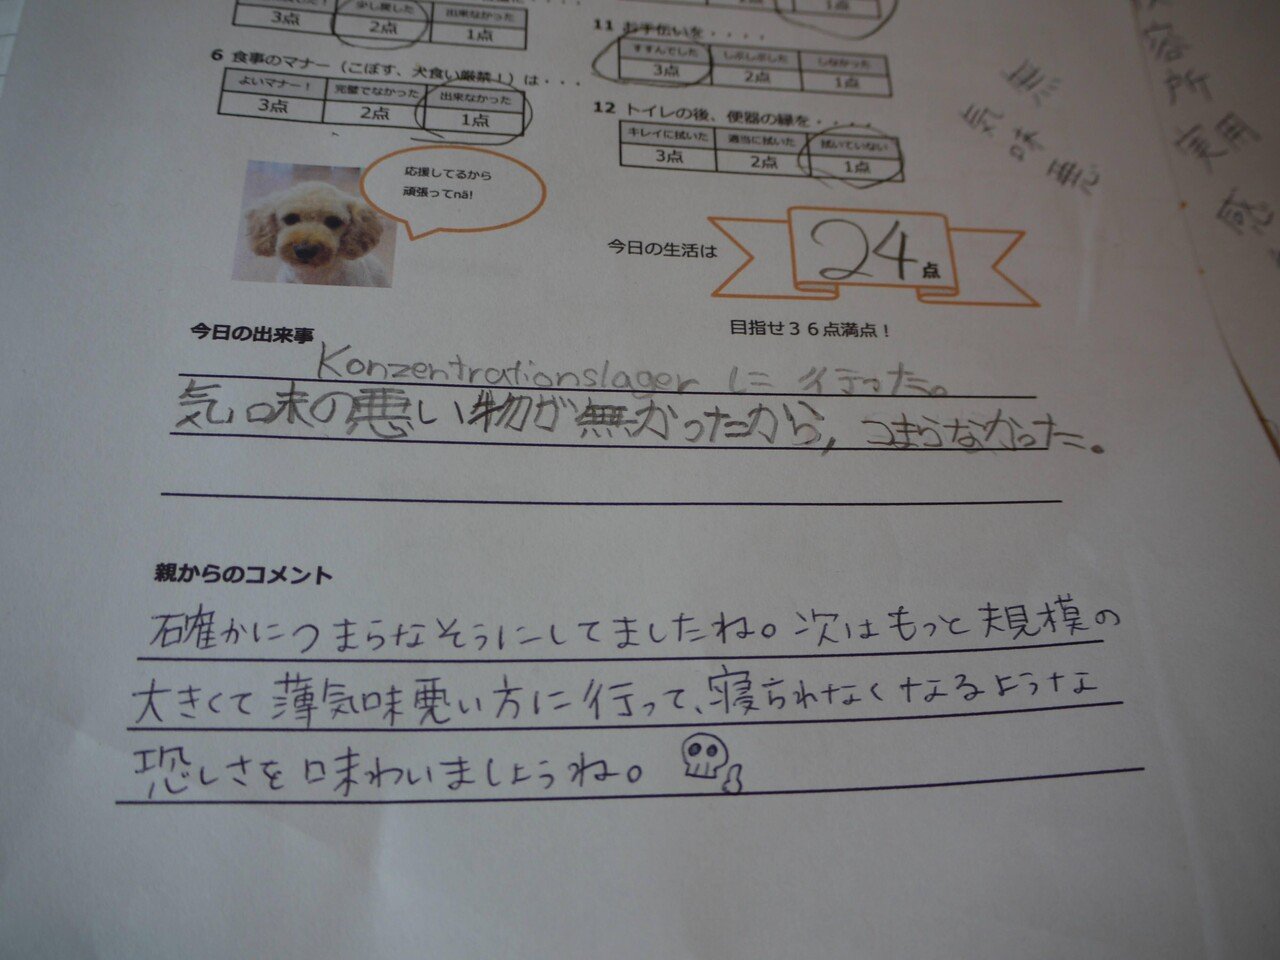 少し戻した 出来なかった
3点 2点 1点
6 食事のマナー(こぼす、犬食い厳禁!)は・・・
よいマナー! 完璧でなかった 出来なかった
3点 2点 1点
1点
11 お手伝いを・・・・
すすんでした しぶしぶした しなかった
3点 2点 1点
12 トイレの後、便器の縁を・・・・
キレイに拭いた 適当に拭いた 拭いていない
3点 2点 1点
応援してるから
頑張ってnä!
今日の生活は 24点
目指せ36点満点!
今日の出来事
Konzentrationslager に行った。
気味の悪い物が無かったから, つまらなかった.
親からのコメント
確かにつまらなそうにしてましたね。次はもっと規模の
大きくて薄気味悪い方に行って、寝られなくなるような
恐しさを味わいましょうね。
無
気味悪
容所
実用
感